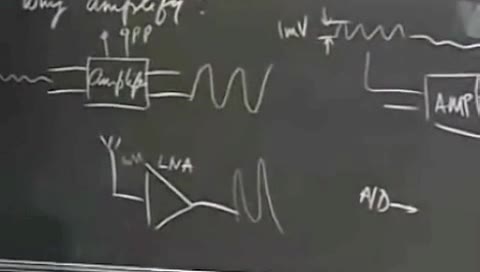 why amplify.
1mV
Amplifier
AMP
LNA
A/D